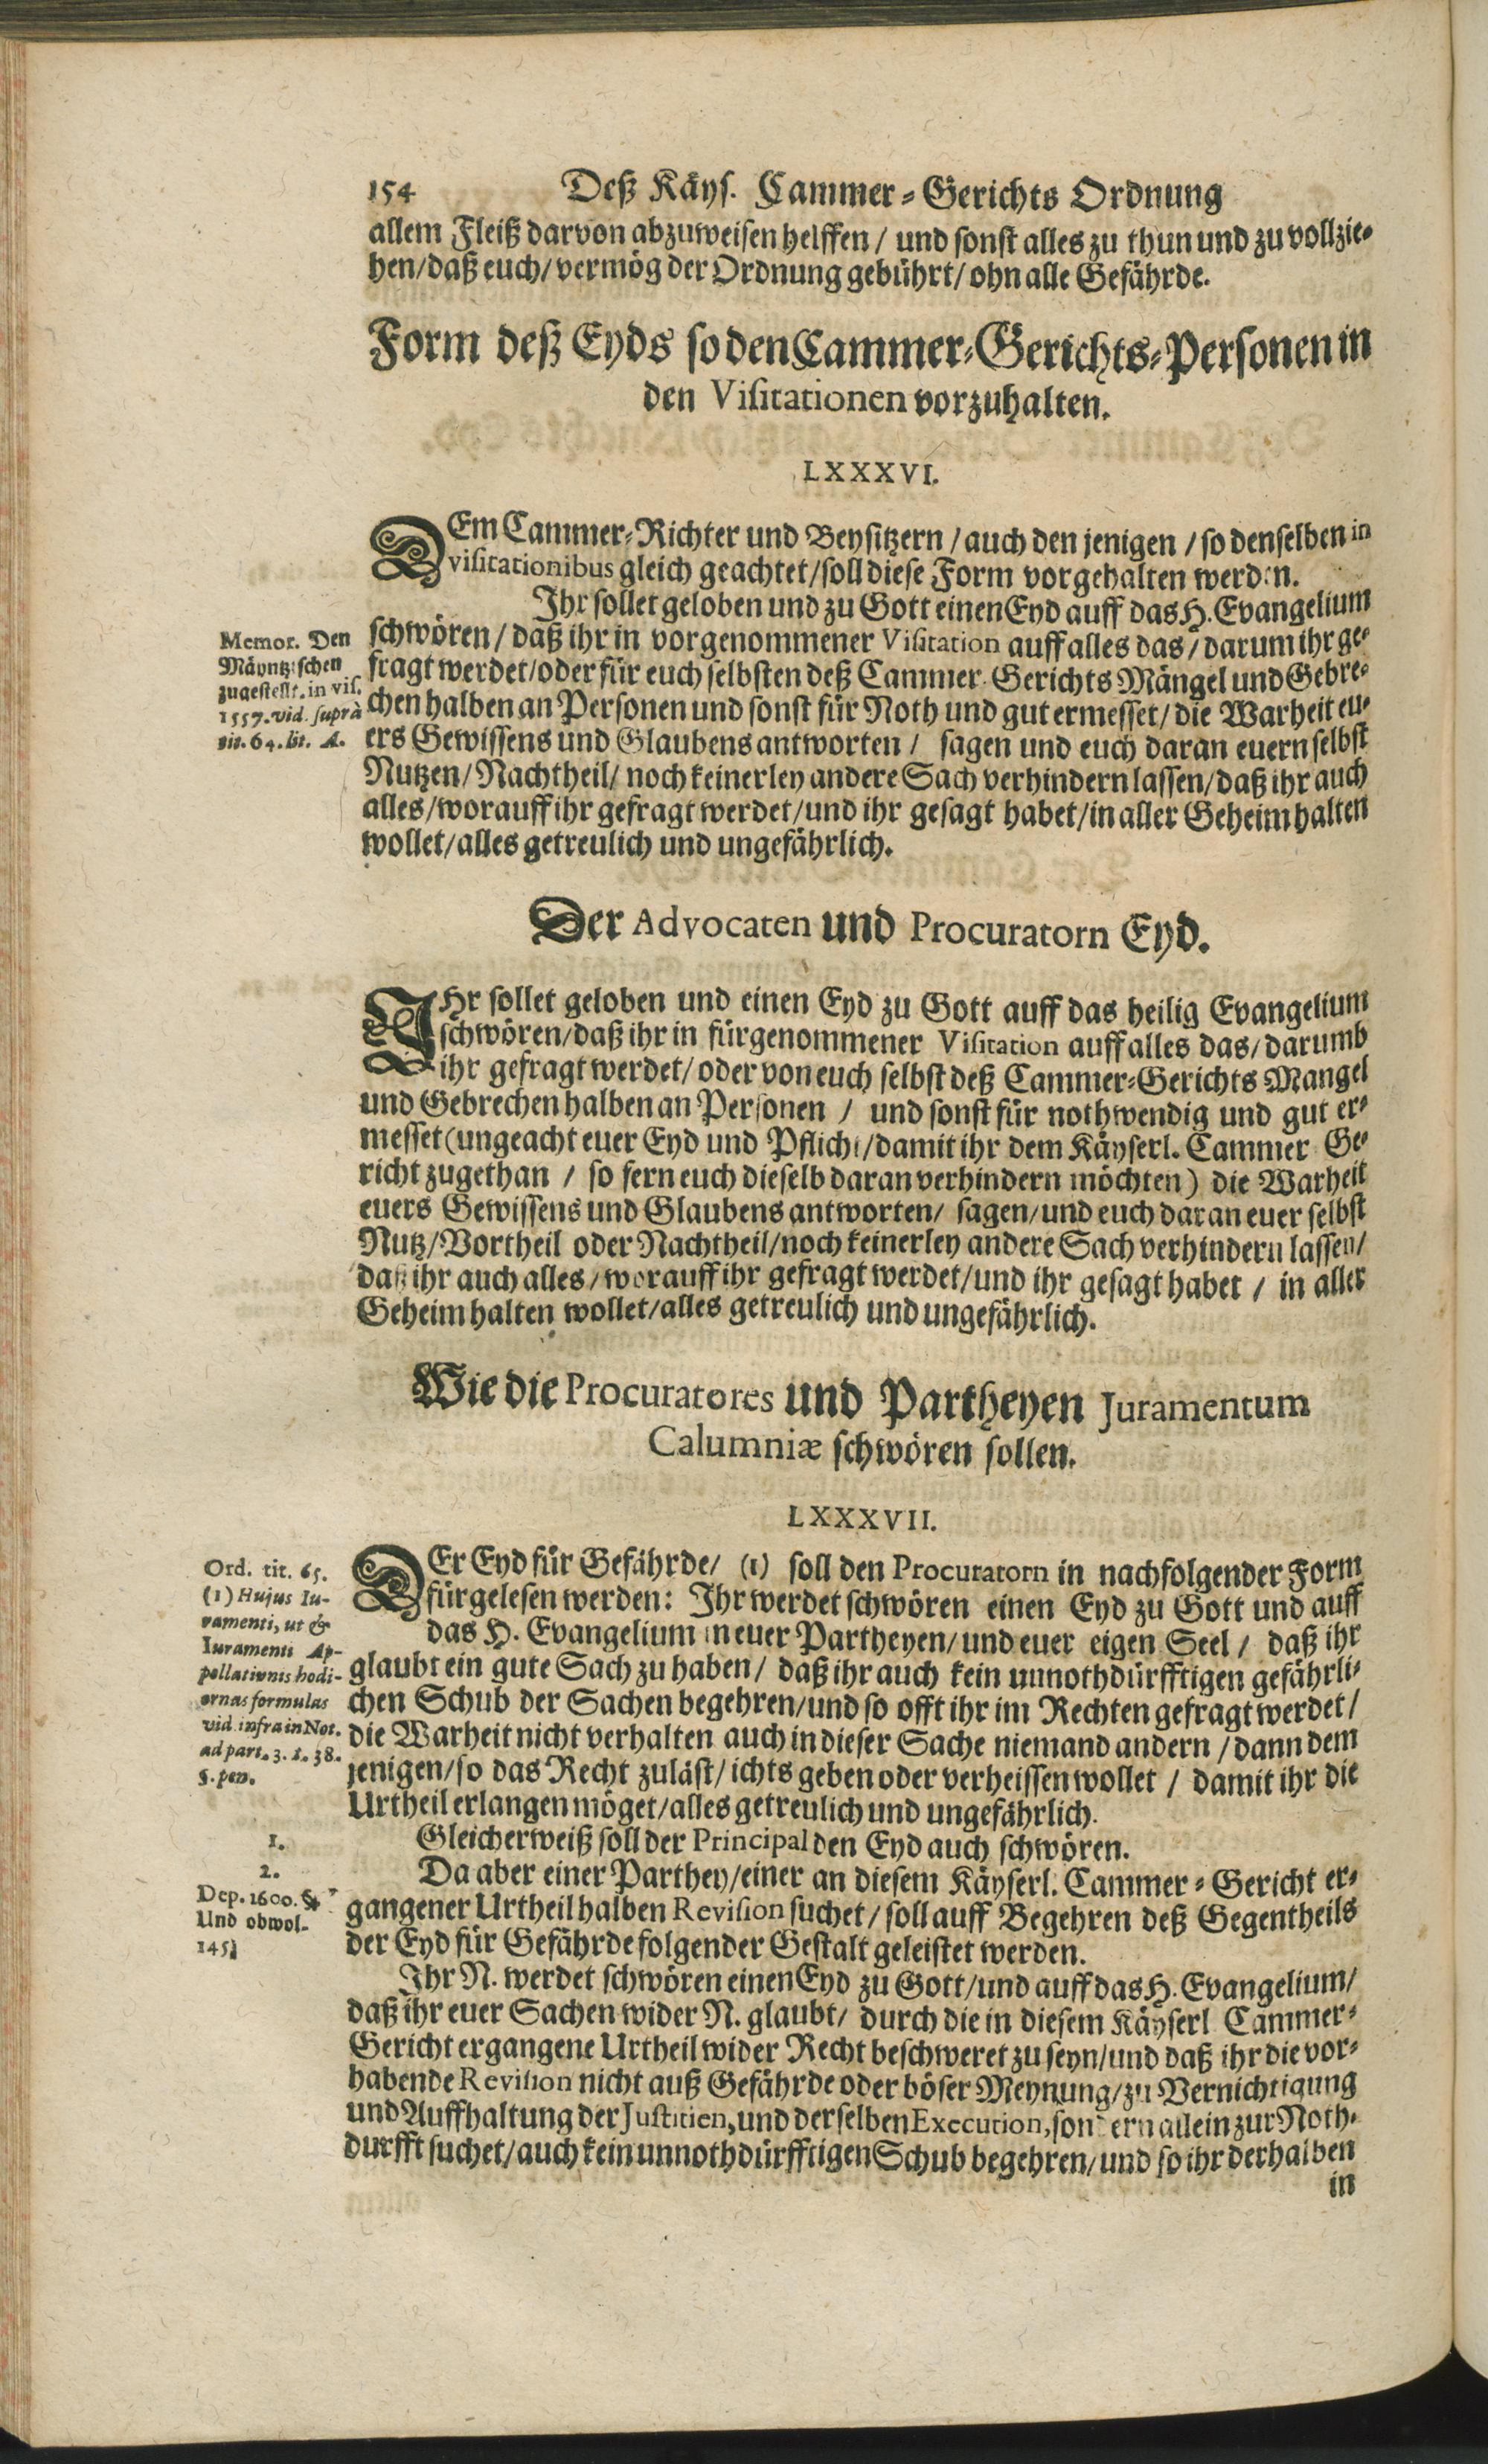 154 Deß Käys. Cammer-Gerichts Ordnung
allem Fleiß darvon abzuweisen helffen / und sonst alles zu thun und zu vollzie-
hen/daß euch/vermög der Ordnung gebührt/ohn alle Gefährde.
Form deß Eyds so den Cammer-Gerichts-Personen in
den Visitationen vorzuhalten.
LXXXVI.
DEm Cammer-Richter und Beysitzern / auch den jenigen / so denselben in
visitationibus gleich geachtet/soll diese Form vorgehalten werden.
Ihr sollet geloben und zu Gott einen Eyd auff das H. Evangelium
schwören/daß ihr in vorgenommener Visitation auff alles das/darum ihr ge-
fragt werdet/oder für euch selbsten deß Cammer-Gerichts Mängel und Gebre-
chen halben an Personen und sonst für Noth und gut ermesset/die Warheit eu-
ers Gewissens und Glaubens antworten / sagen und euch daran euern selbst
Nutzen/Nachtheil/noch keinerley andere Sach verhindern lassen/daß ihr auch
alles/worauff ihr gefragt werdet/und ihr gesagt habet/in aller Geheim halten
wollet/alles getreulich und ungefährlich.
Memor. Den
Mäyntzischen
zugestellt. in vis.
1557. vid. suprà
tit. 64. lit. A.
Der Advocaten und Procuratorn Eyd.
IHr sollet geloben und einen Eyd zu Gott auff das heilig Evangelium
schwören/daß ihr in fürgenommener Visitation auff alles das/darumb
ihr gefragt werdet/oder von euch selbst deß Cammer-Gerichts Mangel
und Gebrechen halben an Personen / und sonst für nothwendig und gut er-
messet (ungeacht euer Eyd und Pflicht/damit ihr dem Käyserl. Cammer-Ge-
richt zugethan / so fern euch dieselb daran verhindern möchten) die Warheit
euers Gewissens und Glaubens antworten/ sagen/und euch daran euer selbst
Nutz/Vortheil oder Nachtheil/noch keinerley andere Sach verhindern lassen/
daß ihr auch alles/worauff ihr gefragt werdet/und ihr gesagt habet / in aller
Geheim halten wollet/alles getreulich und ungefährlich.
Wie die Procuratores und Partheyen Juramentum
Calumniæ schwören sollen.
LXXXVII.
DEr Eyd für Gefährde/ (1) soll den Procuratorn in nachfolgender Form
fürgelesen werden: Ihr werdet schwören einen Eyd zu Gott und auff
das H. Evangelium in euer Partheyen/und euer eigen Seel / daß ihr
glaubt ein gute Sach zu haben/ daß ihr auch kein unnothdürfftigen gefährli-
chen Schub der Sachen begehren/und so offt ihr im Rechten gefragt werdet/
die Warheit nicht verhalten auch in dieser Sache niemand andern / dann dem
jenigen/so das Recht zuläst/ichts geben oder verheissen wollet / damit ihr die
Urtheil erlangen möget/alles getreulich und ungefährlich.
Ord. tit. 65.
(1) Hujus Iu-
ramenti, ut &
Iuramenti Ap-
pellationis hodi-
ernas formulas
vid. infra in Not.
ad part. 3. t. 38.
§. pen.
1. Gleicherweiß soll der Principal den Eyd auch schwören.
2. Da aber einer Parthey/einer an diesem Käyserl. Cammer-Gericht er-
gangener Urtheil halben Revision suchet/soll auff Begehren deß Gegentheils
der Eyd für Gefährde folgender Gestalt geleistet werden.
Dep. 1600. §
Und obwol.
145
Ihr N. werdet schwören einen Eyd zu Gott/und auff das H. Evangelium/
daß ihr euer Sachen wider N. glaubt/ durch die in diesem Käyserl Cammer-
Gericht ergangene Urtheil wider Recht beschweret zu seyn/und daß ihr die vor-
habende Revision nicht auß Gefährde oder böser Meynung/zu Vernichtigung
und Auffhaltung der Justitien, und derselben Execution, sondern allein zur Noth-
durfft suchet/auch kein unnothdürfftigen Schub begehren/und so ihr derhalben
in